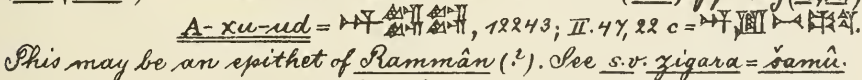 A-xu-ud = 𒀭, 12243; II. 47, 22 c = 𒀭
This may be an epithet of Rammân (?). See s.v. zigara = šamû.